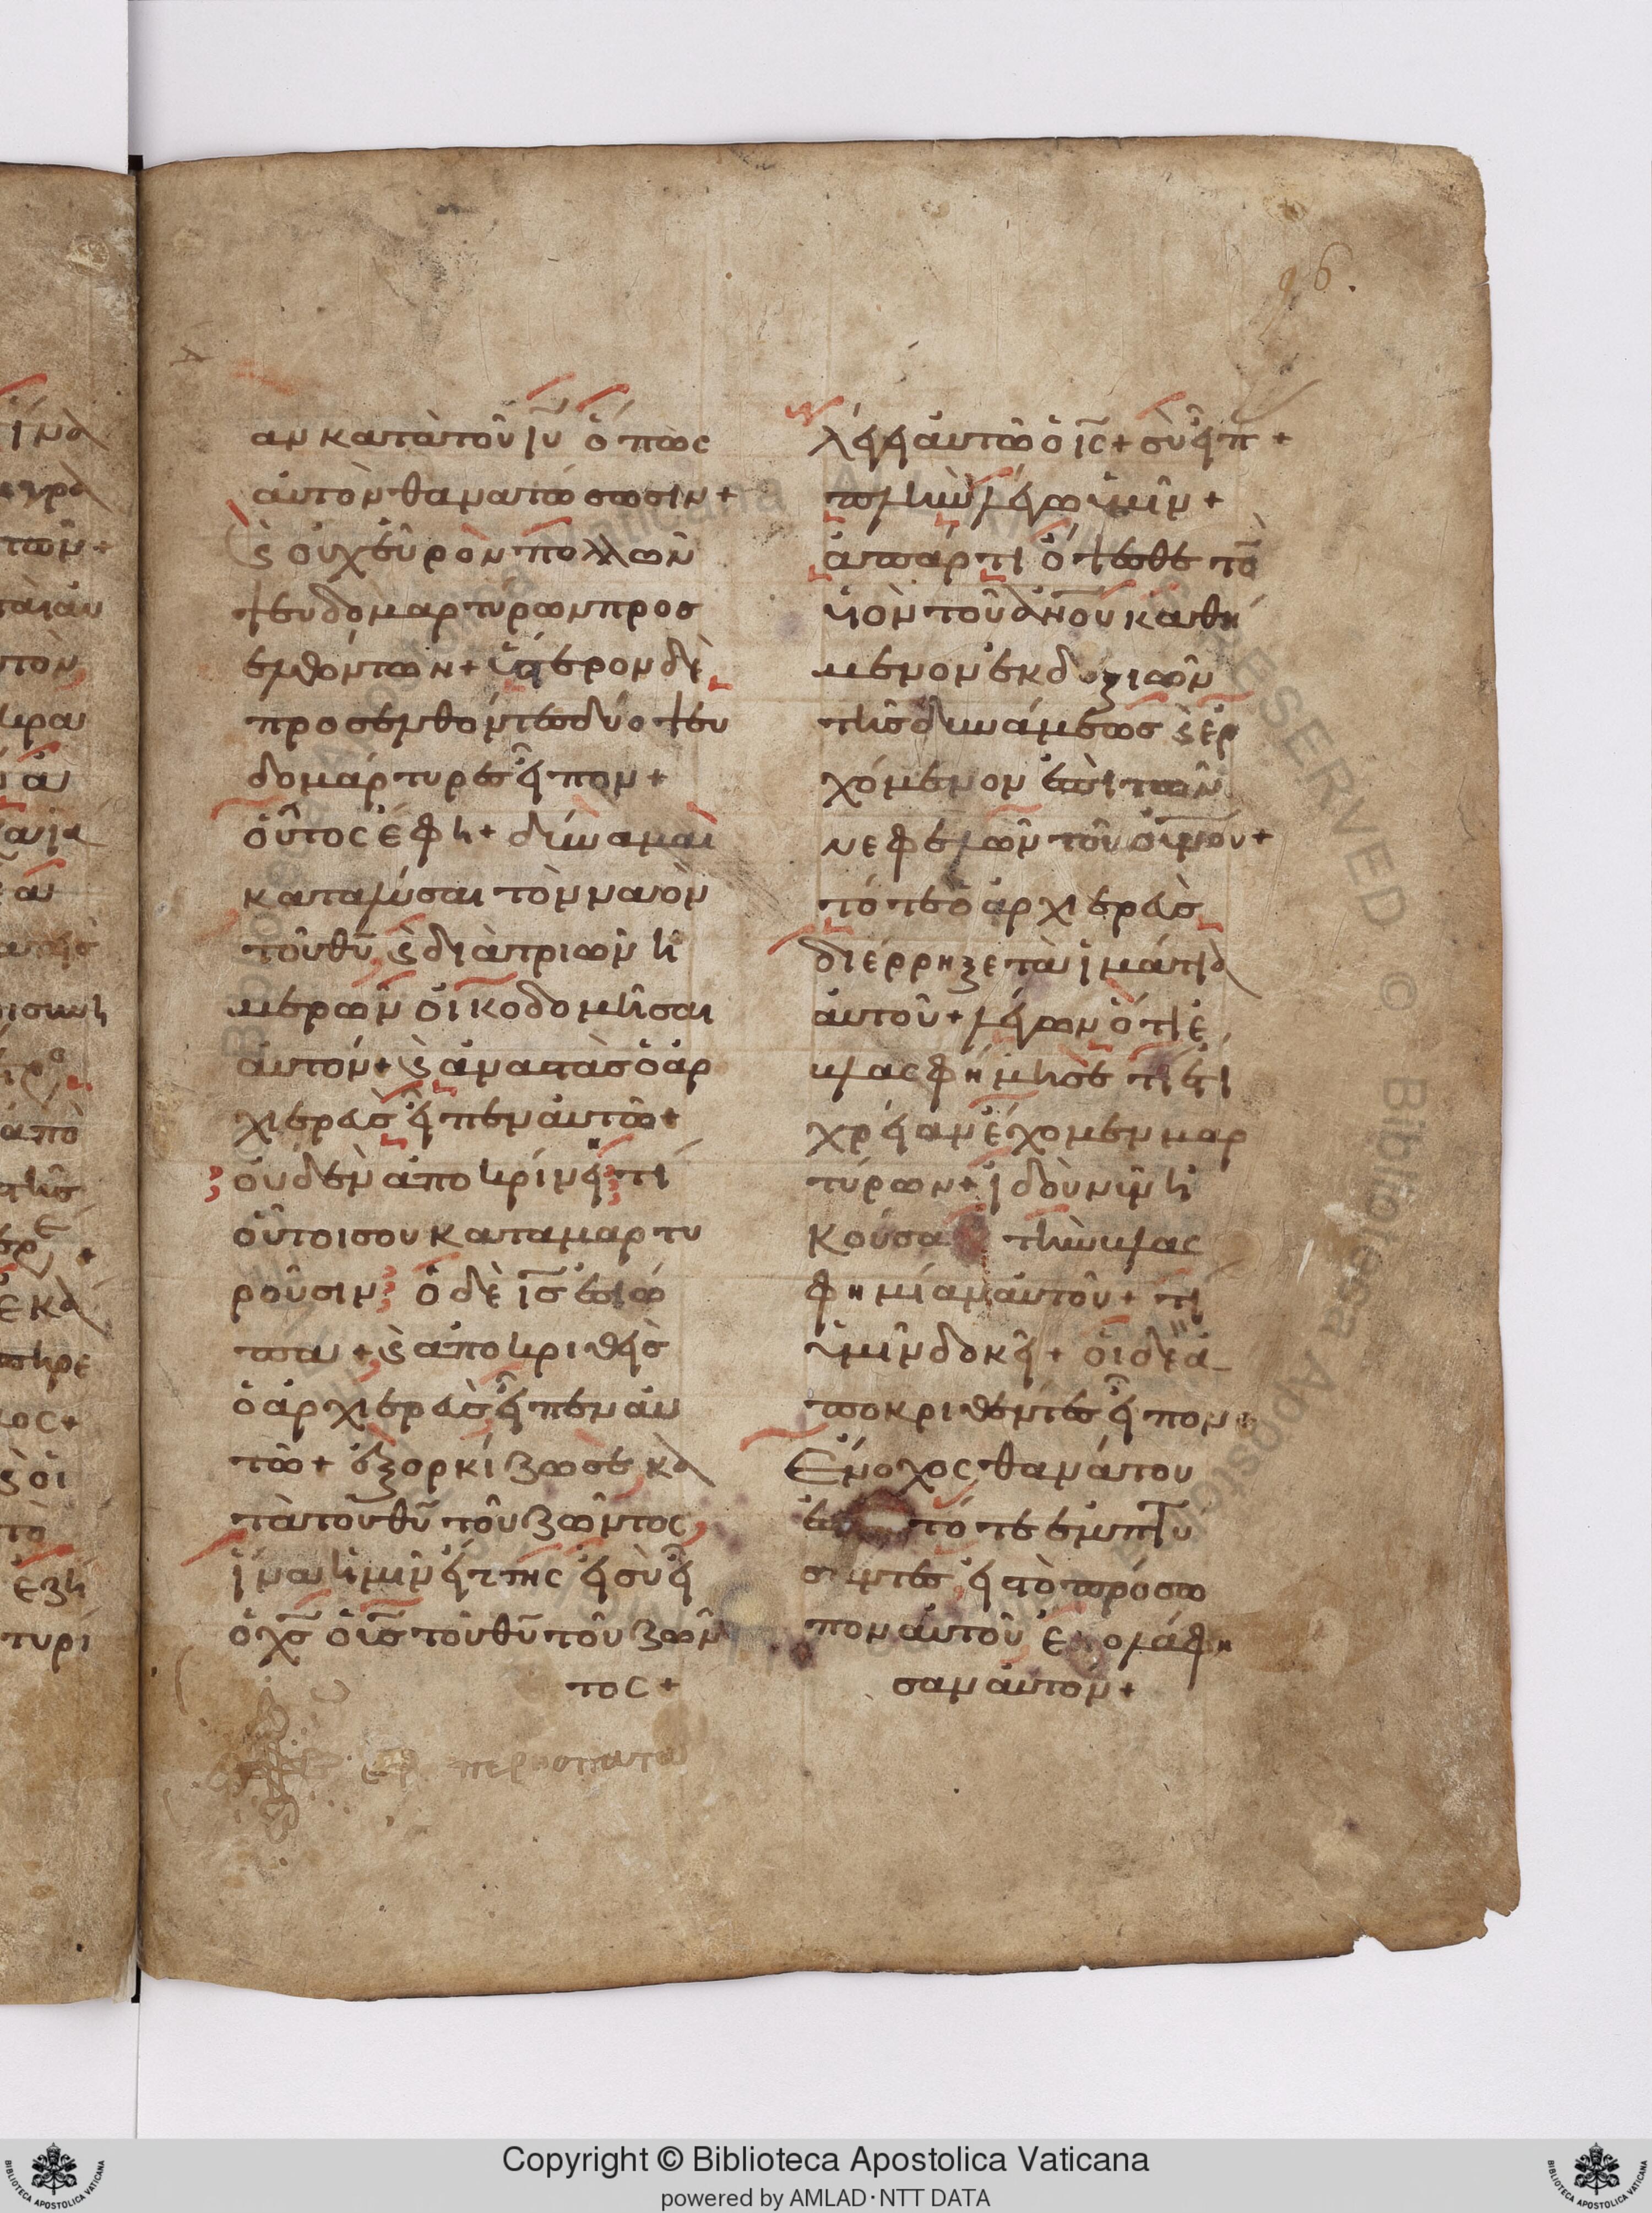 96.
αν κατὰ τοῦ ιῦ ὅπως
ἀυτὸν θανατώσωσιν +
ϛ οὐχ εὗρὸν πολλῶν
ψευδομαρτύρων προσ
ελθόντων + ὕστερον δὲ
προσελθόντες δύο ψευ
δομάρτυρες εἶπον +
οὗτος ἔφη + δύναμαι
καταλύσαι τὸν ναὸν
τοῦ θῦ ϛ διὰ τριῶν ἡ
μερῶν οἰκοδομῆσαι
ἀυτόν + ϛ ἀναστὰσ ὁ ἀρ
χιερεὺσ εἶπεν ἀυτῶ +
οὐδὲν ἀποκρίνει τί
οὗτοι σου καταμαρτυ
ροῦσιν; ὁ δὲ ισ ἐσιώ
πα + ϛ ἀποκριθεὶσ
ὁ ἀρχιερεὺσ εἶπεν ἀυ
τῶ + ἐξορκίζω σὲ κα
τὰ τοῦ θῦ τοῦ ζῶντος
ἵνα ἡμῖν εἴπης εἰ σὺ εἶ
ὁ χσ ὁ ισ τοῦ θῦ τοῦ ζῶν
τος +
λέγει ἀυτῶ ὁ ις + σὺ εἶπ +
πλὴν λέγω ὑμῖν +
ἀπάρτι ὄψεσθε τὸ
υἱὸν τοῦ ἀνου καθή
μενον ἐκ δεξιῶν
τῆς δυνάμεως ϛ ἐρ
χόμενον ἐπὶ τῶν
νεφελῶν τοῦ οὐνου +
τότε ὁ ἀρχιερεὺσ
διέρρηξε τὰ ἱμάτια
ἀυτοῦ + λέγων ὅτι ἐ
βλασφήμησε τί ἔτι
χρείαν ἔχομεν μαρ
τύρων + ἴδοὺ νῦν ἠ
κούσα τὴν βλας
φημίαν ἀυτοῦ + τί
ὑμῖν δοκεῖ + οἱ δὲ ἀ
ποκριθέντες εἶπον
Ἔνοχος θανάτου
τότε ἐνπτυ
σαντες εἰς τὸ πρόσω
πον ἀυτοῦ ἐκολάφη
σαν ἀυτόν +
Copyright © Biblioteca Apostolica Vaticana
powered by AMLAD·NTT DATA